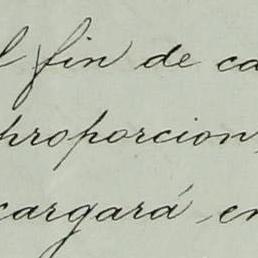 l fin de ca
proporcion,
cargará en